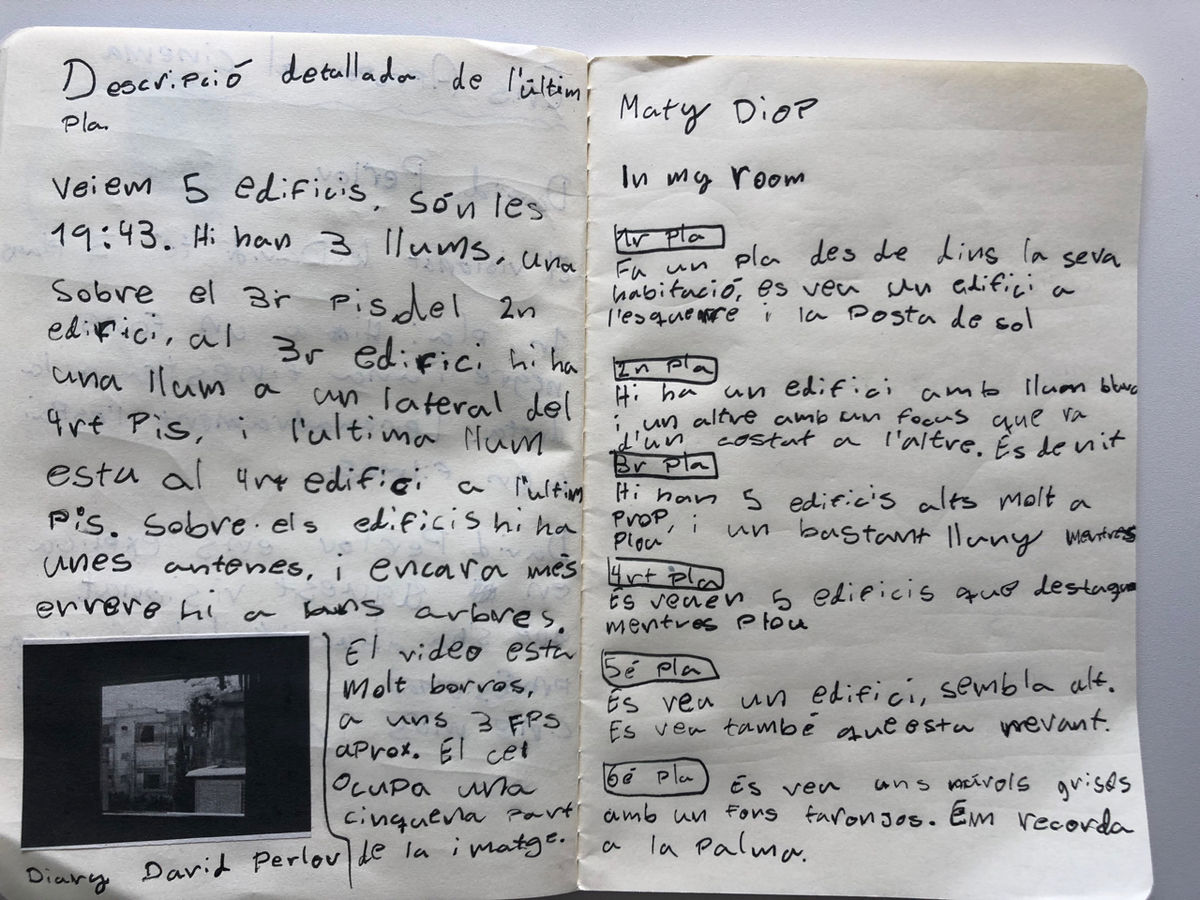 Descripció detallada de l'últim
pla.
Veiem 5 edificis. són les
19:43. Hi han 3 llums, una
sobre el 3r pis del 2n
edifici, al 3r edifici hi ha
una llum a un lateral del
4rt Pis, i l'ultima llum
esta al 4rt edifici a l'ultim
Pis. Sobre els edificis hi ha
unes antenes, i encara més
errere hi a uns arbres.
El video esta
molt borros,
a uns 3 FPS
aprox. El cel
ocupa una
cinquena part
de la imatge.
Diary David Perlov
Maty Diop
In my room
1r Pla
Fa un pla des de dins la seva
habitació, es veu un edifici a
l'esquerre i la Posta de sol
2n Pla
Hi ha un edifici amb llum
i un altre amb un focus que va
d'un costat a l'altre. És de nit
3r Pla
Hi han 5 edificis alts molt a
prop, i un bastant lluny mentres
plou
4rt pla
És veuen 5 edificis que
mentres plou
5é pla
És veu un edifici, sembla alt.
És veu també que esta nevant.
6é pla És veu uns núvols grisos
amb un fons taronjos. Em recorda
a la Palma.